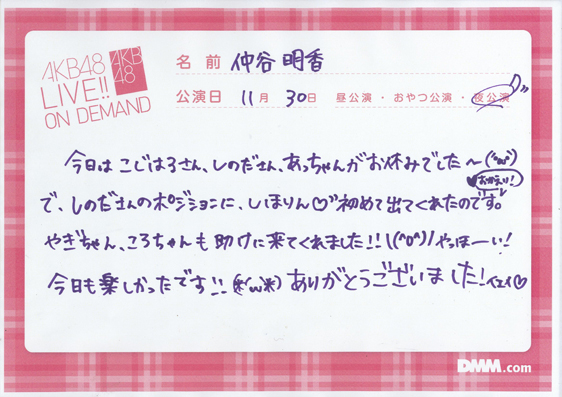 AKB48
LIVE!!
ON DEMAND
AKB
48
名前 仲谷明香
公演日 11月 30日 昼公演・おやつ公演・夜公演
今日は こじはるさん、しのださん、あっちゃんがお休みでした〜(^o^)
おかえり!
で、しのださんのポジションに、しほりん♡初めて出てくれたのです。
やぎちゃん、ころちゃんも助けに来てくれました!! \(^0^)/ やっほーい!
今日も楽しかったです!! (*´ω`*) ありがとうございました! イェイ♡
DMM.com